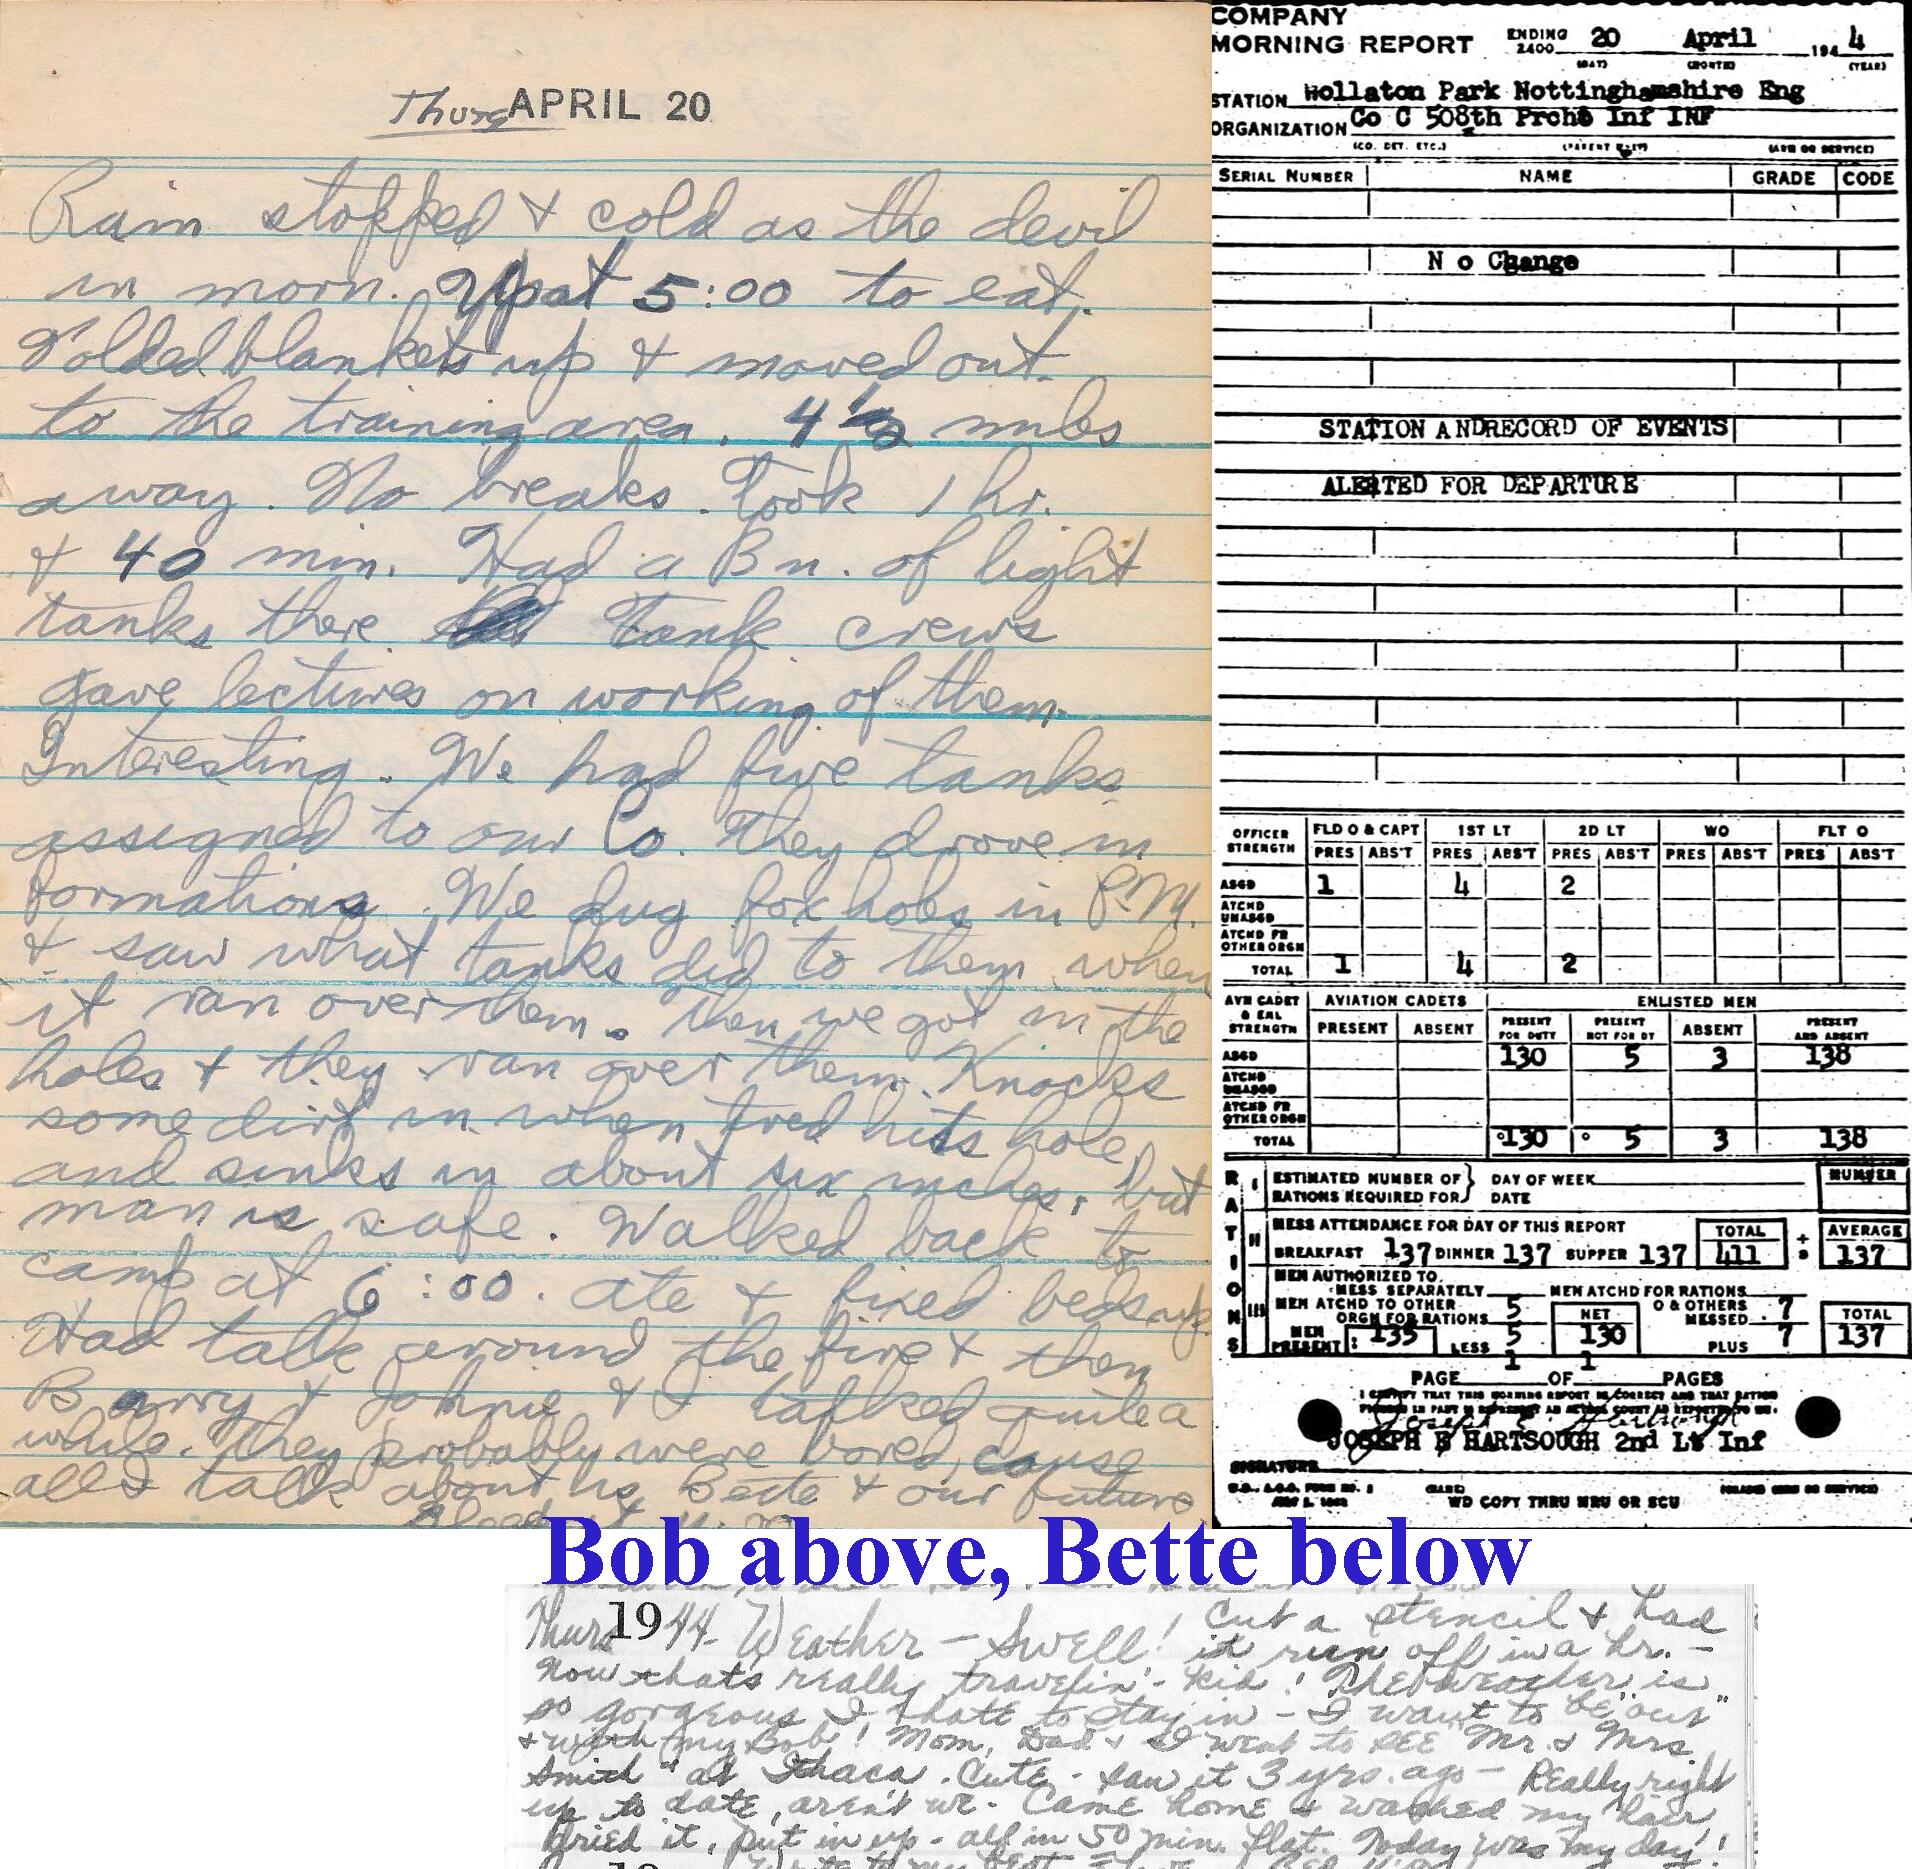 Thurs APRIL 20
Rain stopped & cold as the devil
in morn. Up at 5:00 to eat.
Folded blankets up & moved out
to the training area. 4 1/2 miles
away. No breaks. Took 1 hr.
& 40 min. Had a Bn. of light
tanks there Tank crews
gave lectures on working of them.
Interesting. We had five tanks
assigned to our Co. They drove in
formations. We dug fox holes in P.M.
& saw what tanks did to them when
it ran over them. Then we got in the
holes & they ran over them. Knocks
some dirt in when tred hits hole,
and sinks in about six inches, but
man is safe. Walked back to
camp at 6:00. Ate & fixed beds up.
Had talk around the fire & then
Barry & Johnie & I talked quite a
while. They probably were bored, cause
all I talk about is Bette & our future.
COMPANY
MORNING REPORT ENDING 2400 20 April 194 4
(DAY) (MONTH) (YEAR)
STATION Wollaton Park Nottinghamshire Eng
ORGANIZATION Co C 508th Prcht Inf INF
(CO. DET. ETC.) (PARENT UNIT) (ARM OR SERVICE)
SERIAL NUMBER NAME GRADE CODE
N o Change
STATION ANDRECORD OF EVENTS
ALERTED FOR DEPARTURE
OFFICER STRENGTH FLD O & CAPT 1ST LT 2D LT WO FLT O
PRES ABS'T PRES ABS'T PRES ABS'T PRES ABS'T PRES ABS'T
ASGD 1 4 2
ATCHD UNASGD
ATCHD FR OTHER ORGN
TOTAL 1 4 2
AVN CADET & EM STRENGTH AVIATION CADETS ENLISTED MEN
PRESENT ABSENT PRESENT FOR DUTY PRESENT NOT FOR DY ABSENT PRESENT AND ABSENT
ASGD 130 5 3 138
ATCHD UNASGD
ATCHD FR OTHER ORGN
TOTAL 130 5 3 138
RATIONS
I ESTIMATED NUMBER OF RATIONS REQUIRED FOR DAY OF WEEK DATE NUMBER
II MESS ATTENDANCE FOR DAY OF THIS REPORT TOTAL AVERAGE
BREAKFAST 137 DINNER 137 SUPPER 137 411 ÷ 137
III MEN AUTHORIZED TO MESS SEPARATELY MEN ATCHD FOR RATIONS
MEN ATCHD TO OTHER ORGN FOR RATIONS 5 NET O & OTHERS MESSED 7 TOTAL
MEN PRESENT : 135 LESS 5 130 PLUS 7 137
PAGE 1 OF 1 PAGES
I CERTIFY THAT THIS MORNING REPORT IS CORRECT AND THAT RATION
Joseph E. Hartsough
JOSEPH E HARTSOUGH 2nd Lt Inf
SIGNATURE
WD COPY THRU MRU OR SCU
Bob above, Bette below
Thurs 1944. Weather - Swell! Cut a stencil & had
it run off in a hr. -
Now that's really travelin' - kid! The weather is
so gorgeous I hate to stay in - I want to be "out"
& with my Bob! Mom, Dad & I went to see "Mr. & Mrs.
Smith" at Ithaca. Cute - saw it 3 yrs. ago - Really right
up to date, aren't we. Came home & washed my hair,
dried it, put in up - all in 50 min. flat. Today was my day!